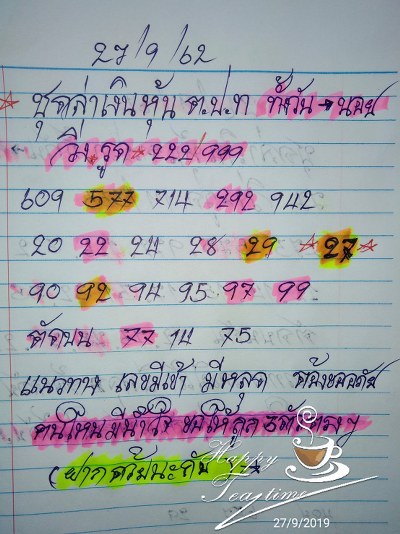 27/9/62
ชุดล่าเงินหุ้น ต.ป.ท ทั้งวัน → นอย
วิน รูด 222/999
609 577 714 292 942
20 22 24 28 29 27
90 92 94 95 97 99
ตัดบน 77 14 75
แนวทาง เลขมีเข้า มีหลุด ต้องขออภัย
คนไหนมีน้ำใจ ขอให้ถูก 3 ตัวตรงๆ
(ฝากด้วยนะคับ
Happy
Teatime
27/9/2019